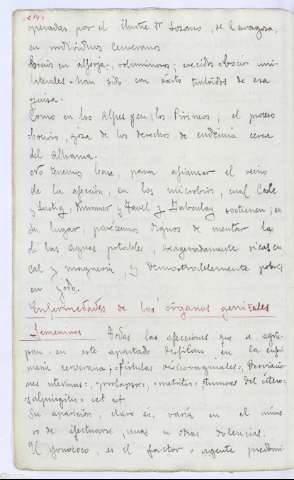 operadas por el ilustre Dr Lozano, de Zaragoza,
en individuos cerveranos.
Bocios en alforja, voluminosos; crecidos bocios uni-
laterales han sido con éxito tratados de esa
guisa.
Como en los Alpes y en los Pirineos, el proceso
bocioso, goza de los derechos de endemia cerca
del Alhama.
No tenemos base, para afianzar el reino
de la afección, en los microbios, cual
y Lustig, y Favel y Jaboulay sostienen; en
su lugar, parécennos dignos de mentar la
d las aguas potables, exageradamente ricas en
cal y magnesia, y demostrablemente pobres
en yodo.
Enfermedades de los órganos genitales
Femeninos Todas las afecciones que se agru-
pan en este apartado desfilan en la enfer-
mería cerverana; fístulas vesicovaginales, desviacio-
nes uterinas, prolapsos, metritis, tumores del útero,
salpingitis, cet
Su aparición, claro es, varía en el núme
ro de efectuarse, unas u otras dolencias.
El gonococo, es el factor o agente predomi